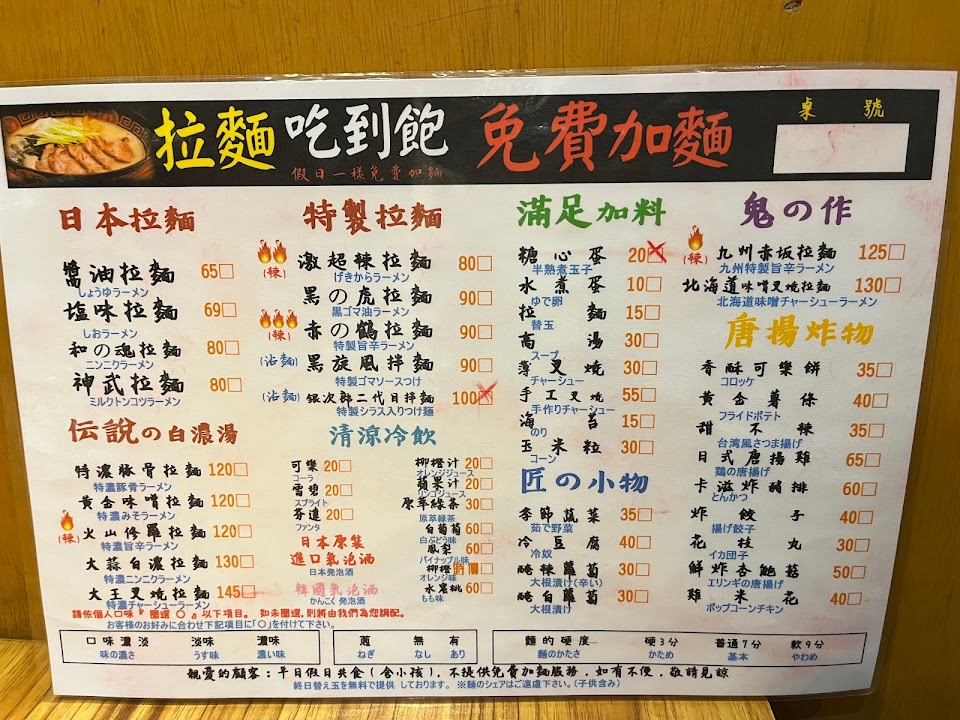 拉麵 吃到飽 免費加麵
假日一樣免費加麵
桌 號
日本拉麵
醬油拉麵 65
しょうゆラーメン
塩味拉麵 69
しおラーメン
和の魂拉麵 80
ニンニクラーメン
神武拉麵 80
ミルクトンコツラーメン
伝説の白濃湯
特濃豚骨拉麵 120
特濃豚骨ラーメン
黃金味噌拉麵 120
特濃みそラーメン
(辣) 火山修羅拉麵 120
特濃旨辛ラーメン
大蒜白濃拉麵 130
特濃ニンニクラーメン
大王叉燒拉麵 145
特濃チャーシューラーメン
特製拉麵
(辣) 激超辣拉麵 80
げきからラーメン
黑の虎拉麵 90
黒ゴマ油ラーメン
(辣) 赤の鶴拉麵 90
特製旨辛ラーメン
(沾麵) 黑旋風拌麵 90
特製ゴマソースつけ
(沾麵) 銀次郎二代目拌麵 100
特製シラス入りつけ麺
清涼冷飲
可樂 20
コーラ
雪碧 20
スプライト
芬達 20
ファンタ
日本原裝
進口氣泡酒
日本発泡酒
韓國氣泡酒
かんこく発泡酒
柳橙汁 20
オレンジジュース
蘋果汁 20
リンゴジュース
原萃綠茶 30
原萃緑茶
白葡萄 60
白ぶどう味
鳳梨 60
パイナップル味
柳橙
オレンジ味
水蜜桃 60
もも味
滿足加料
糖心蛋 20
半熟煮玉子
水煮蛋 10
ゆで卵
拉麵 15
替玉
高湯 30
スープ
薄叉燒 30
チャーシュー
手工叉燒 55
手作りチャーシュー
海苔 15
のり
玉米粒 30
コーン
匠の小物
季節蔬菜 35
茹で野菜
冷豆腐 40
冷奴
醃辣蘿蔔 30
大根漬け(辛い)
醃白蘿蔔 30
大根漬け
鬼の作
(辣) 九州赤坂拉麵 125
九州特製旨辛ラーメン
北海道味噌叉燒拉麵 130
北海道味噌チャーシューラーメン
唐揚炸物
香酥可樂餅 35
コロッケ
黃金薯條 40
フライドポテト
甜不辣 35
台湾風さつま揚げ
日式唐揚雞 65
鶏の唐揚げ
卡滋炸豬排 60
とんかつ
炸餃子 40
揚げ餃子
花枝丸 30
イカ団子
鮮炸杏鮑菇 50
エリンギの唐揚げ
雞米花 40
ポップコーンチキン
請依個人口味『圈選 〇 』以下項目。 如未圈選,則將由我們為您調配。
お客様のお好みに合わせ下記項目に「〇」を付けて下さい。
口味濃淡 淡味 濃味
味の濃さ うす味 濃い味
蔥 無 有
ねぎ なし あり
麵的硬度 硬3分 普通7分 軟9分
麺のかたさ かため 基本 やわめ
親愛的顧客：平日假日共食(含小孩),不提供免費加麵服務，如有不便，敬請見諒
終日替え玉を無料で提供 しております。 ※麺のシェアはご遠慮下さい。(子供含み)